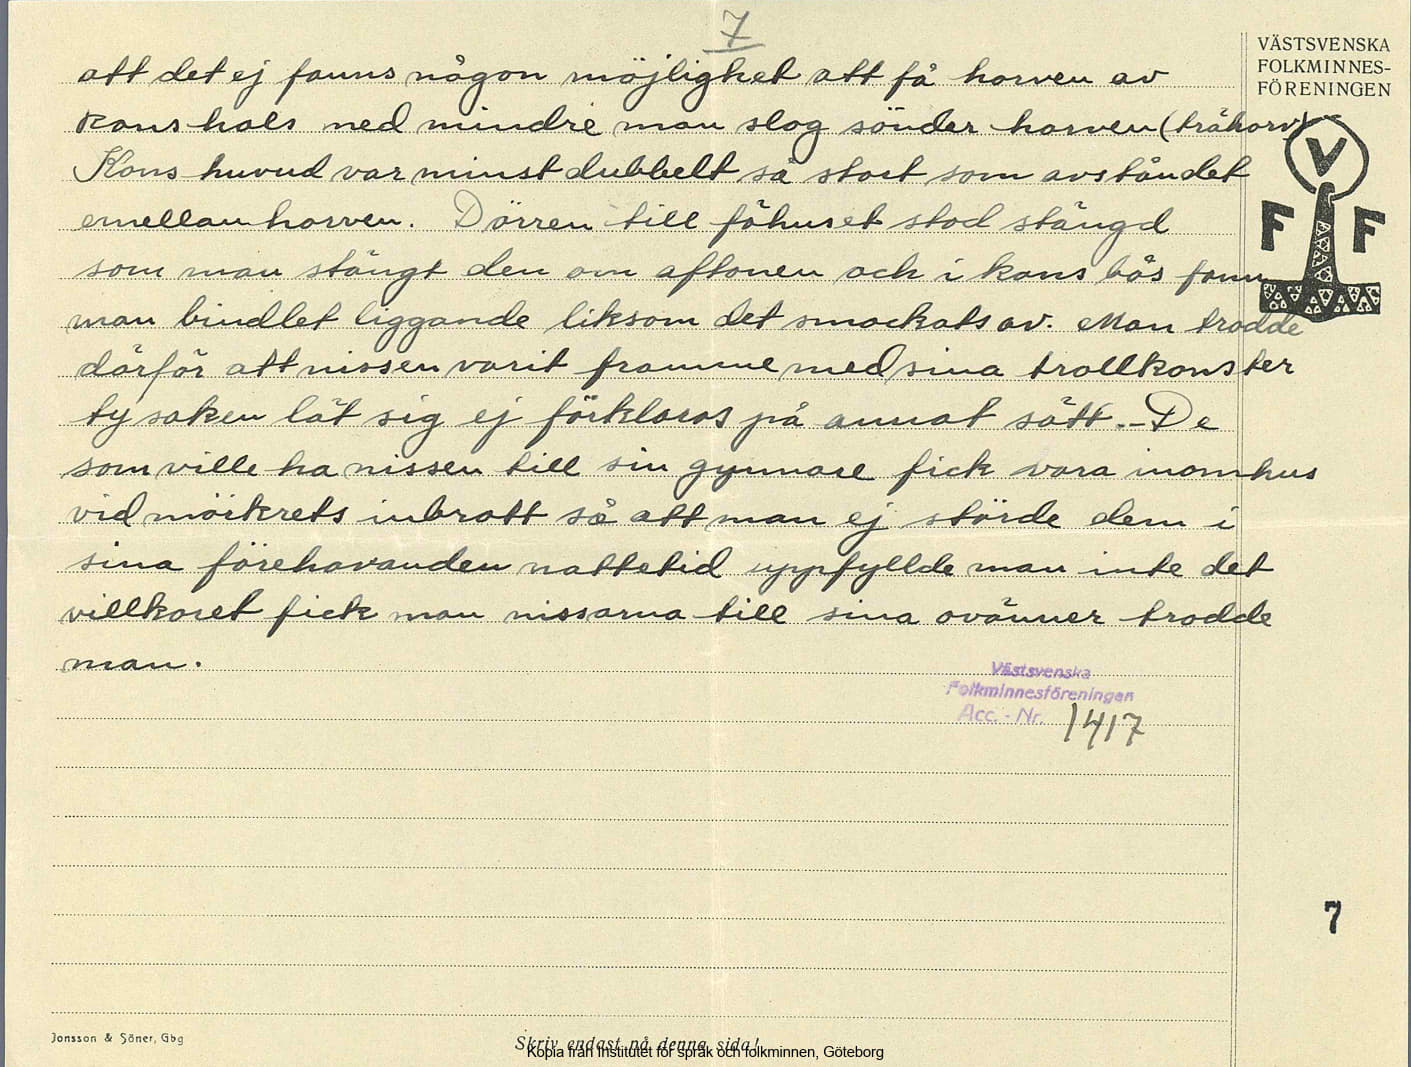 7
VÄSTSVENSKA
FOLKMINNES-
FÖRENINGEN
att det ej fanns någon möjlighet att få horven av
kons hals med mindre man slog sönder horven (trähorv)
Kons huvud var minst dubbelt så stort som avståndet
emellan horven. Dörren till fähuset stod stängd
som man stängt den om aftonen och i kons bås fann
man bindlet liggande liksom det smockats av. Man trodde
därför att nissen varit framme med sina trollkonster
ty saken lät sig ej förklaras på annat sätt. - De
som ville ha nissen till sin gynnare fick vara inomhus
vid mörkrets inbrott så att man ej störde dem i
sina förehavanden nattetid uppfyllde man inte det
villkoret fick man nissarna till sina ovänner trodde
man.
V
F F
Västsvenska
Folkminnesföreningen
Acc. - Nr. 1417
7
Jonsson & Söner, Gbg
Skriv endast på denna sida!
Kopia från Institutet för språk och folkminnen, Göteborg